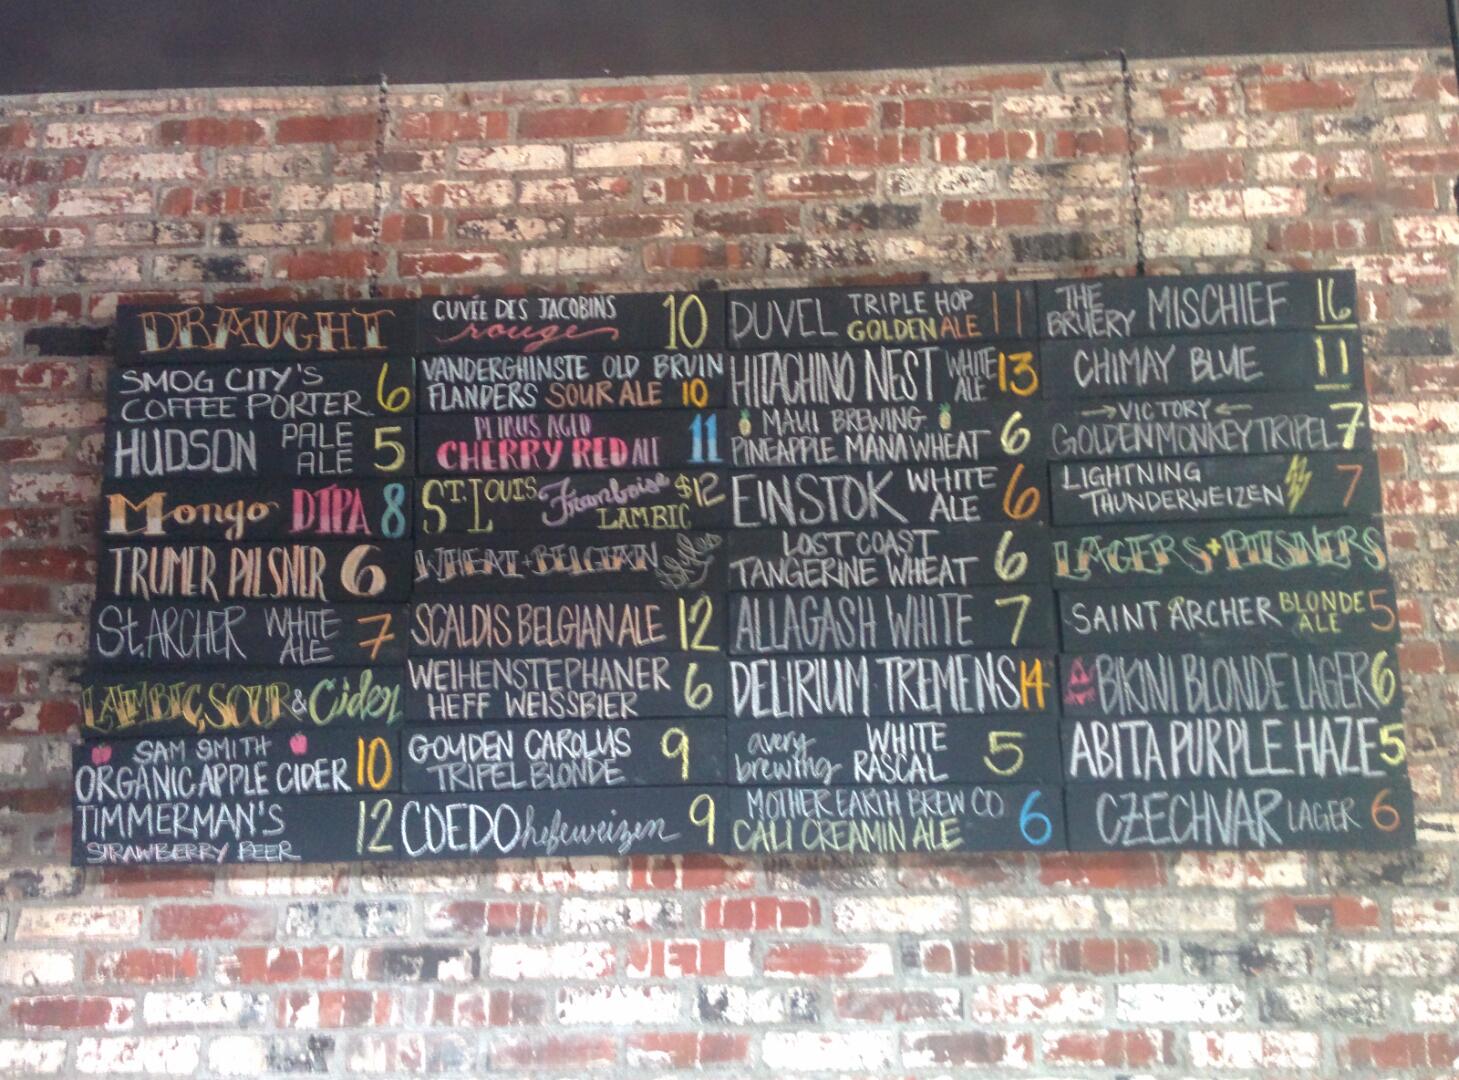 DRAUGHT
SMOG CITY'S
COFFEE PORTER 6
HUDSON PALE ALE 5
Mongo DIPA 8
TRUMER PILSNER 6
St. ARCHER WHITE ALE 7
LAMBIC, SOUR & Cider
SAM SMITH
ORGANIC APPLE CIDER 10
TIMMERMAN'S 12
STRAWBERRY BEER
CUVÉE DES JACOBINS 10
rouge
VANDERGHINSTE OLD BRUIN
FLANDERS SOUR ALE 10
AGED
CHERRY RED ALE 11
ST. LOUIS Framboise $12
LAMBIC
WHEAT + BELGIAN Styles
SCALDIS BELGIAN ALE 12
WEIHENSTEPHANER 6
HEFF WEISSBIER
GOUDEN CAROLUS 9
TRIPEL BLONDE
COEDO hefeweizen 9
DUVEL TRIPLE HOP 11
GOLDEN ALE
HITACHINO NEST WHITE ALE 13
MAUI BREWING
PINEAPPLE MANA WHEAT 6
EINSTOK WHITE ALE 6
LOST COAST
TANGERINE WHEAT 6
ALLAGASH WHITE 7
DELIRIUM TREMENS 14
avery brewing WHITE RASCAL 5
MOTHER EARTH BREW CO
CALI CREAMIN ALE 6
THE BRUERY MISCHIEF 16
CHIMAY BLUE 11
→VICTORY←
GOLDEN MONKEY TRIPEL 7
LIGHTNING
THUNDERWEIZEN 7
LAGERS + PILSNERS
SAINT ARCHER BLONDE ALE 5
BIKINI BLONDE LAGER 6
ABITA PURPLE HAZE 5
CZECHVAR LAGER 6